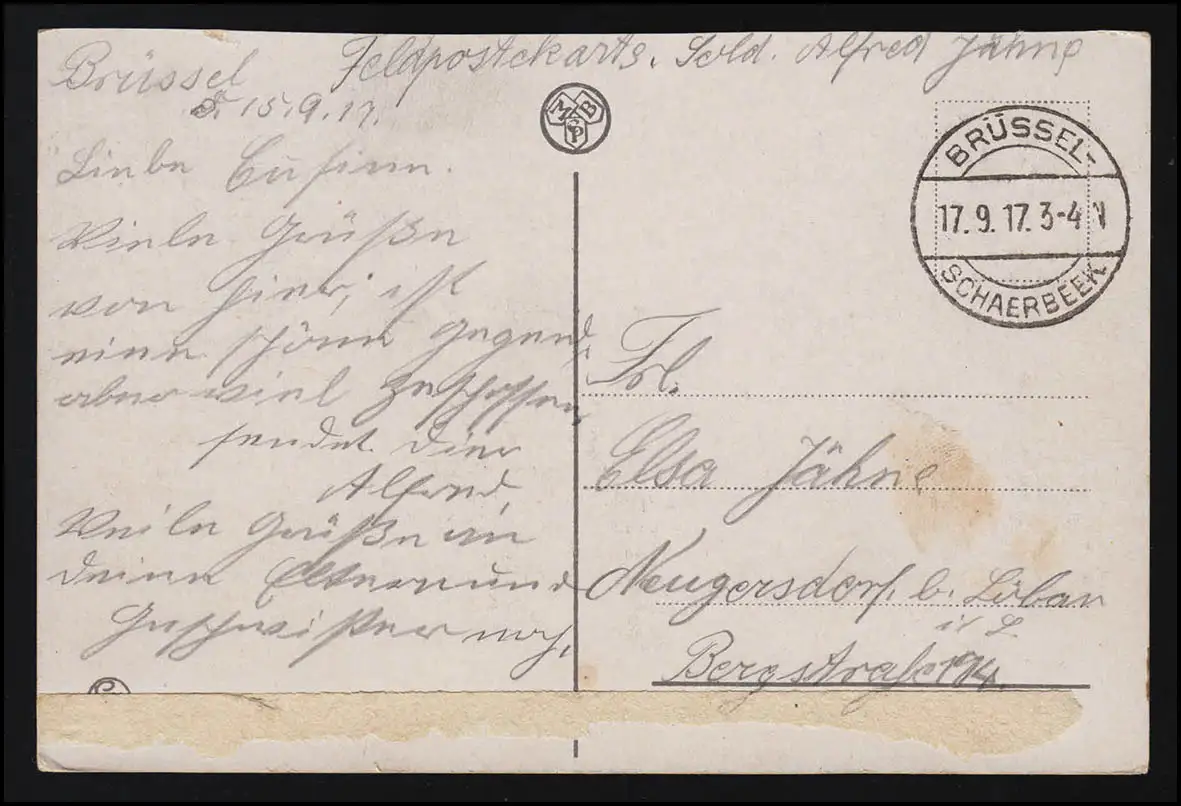 Brüssel Feldpostekarte. Sold. Alfred Jähne
d. 15.9.17.
MPB
Liebe Cusine.
Viele Grüße
von hier, ist
eine schöne Gegend,
aber viel zerschossen,
sendet Dier
Alfred,
Veile Grüße an
deine Eltern und
Geschwister noch,
BRÜSSEL-
17. 9. 17. 3-4 N
SCHAERBEEK
Frl.
Elsa Jähne
Neugersdorf. b. Löbau
i/ S.
Bergstraße 194.